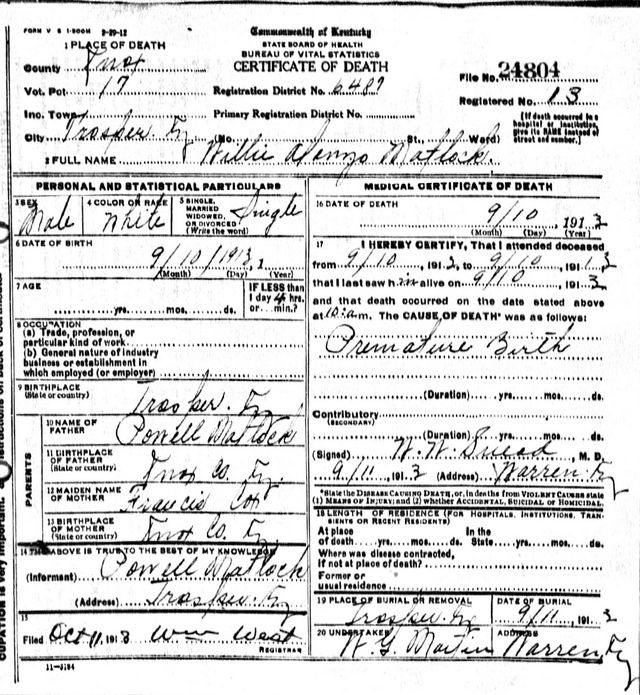 FORM V S 1-500M 2-29-12
Commonwealth of Kentucky
STATE BOARD OF HEALTH
BUREAU OF VITAL STATISTICS
CERTIFICATE OF DEATH
1 PLACE OF DEATH
County Knox
Vot. Pct 17
Registration District No. 6487
File No. 24804
Inc. Town
Primary Registration District No.
Registered No. 13
City Trosper. Ky (No. St., Ward)
[If death occurred in a hospital or institution, give its NAME instead of street and number.]
2 FULL NAME Willie Alonzo Matlock.
PERSONAL AND STATISTICAL PARTICULARS
3 SEX Male
4 COLOR OR RACE White
5 SINGLE, MARRIED WIDOWED, OR DIVORCED (Write the word) Single
6 DATE OF BIRTH
9/10/1913
(Month) (Day) (Year)
7 AGE
yrs. mos. ds.
IF LESS than 1 day 4 hrs. or min.?
8 OCCUPATION
(a) Trade, profession, or
particular kind of work
(b) General nature of industry
business or establishment in
which employed (or employer)
9 BIRTHPLACE
(State or country) Trosper. Ky
PARENTS
10 NAME OF FATHER Powell Matlock
11 BIRTHPLACE OF FATHER (State or country) Knox Co. Ky.
12 MAIDEN NAME OF MOTHER Francis Cox
13 BIRTHPLACE OF MOTHER (State or country) Knox Co. Ky
14 THE ABOVE IS TRUE TO THE BEST OF MY KNOWLEDGE
(Informant) Powell Matlock
(Address) Trosper. Ky
15
Filed Oct 11, 1913 Wm West
REGISTRAR
11-3184
MEDICAL CERTIFICATE OF DEATH
16 DATE OF DEATH
9/10, 1913
(Month) (Day) (Year)
17 I HEREBY CERTIFY, That I attended deceased
from 9/10, 1913, to 9/10, 1913
that I last saw him alive on 9/10, 1913
and that death occurred on the date stated above
at 10:a.m. The CAUSE OF DEATH* was as follows:
Premature Birth
(Duration) yrs. mos. ds.
Contributory
(SECONDARY)
(Duration) yrs. mos. ds.
(Signed) M. D.
9/11, 1913 (Address) Warren. Ky
*State the DISEASE CAUSING DEATH, or, in deaths from VIOLENT CAUSES state
(1) MEANS OF INJURY; and (2) whether ACCIDENTAL, SUICIDAL or HOMICIDAL.
18 LENGTH OF RESIDENCE (FOR HOSPITALS, INSTITUTIONS, TRANSIENTS OR RECENT RESIDENTS)
At place of death yrs. mos. ds. In the State yrs. mos. ds.
Where was disease contracted,
If not at place of death?
Former or
usual residence
19 PLACE OF BURIAL OR REMOVAL Trosper. Ky
DATE OF BURIAL 9/11, 1913
20 UNDERTAKER W. G. Martin
ADDRESS Warren, Ky